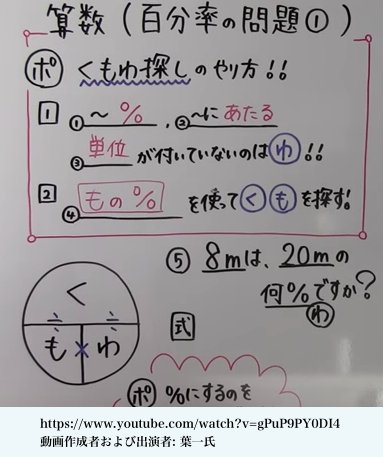 算数(百分率の問題①)
ポ くもわ探しのやり方!!
1 ①~%、②~にあたる
③単位が付いていないのはわ!!
2 ④もの%を使ってくもを探す!
⑤ 8mは、20mの
何%ですか?
わ
く
÷ ÷
も×わ
式
ポ %にするのを
https://www.youtube.com/watch?v=gPuP9PY0DI4
動画作成者および出演者: 葉一氏